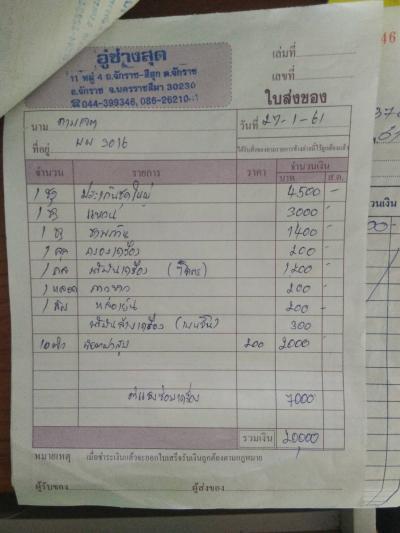 อู่ช่างสุด
11 หมู่ 4 ถ.จักราช-สีสุก ต.จักราช
อ.จักราช จ.นครราชสีมา 30230
☎044-399346, 086-26210
เล่มที่
เลขที่
ใบส่งของ
นาม
วันที่ 27-1-61
ที่อยู่ 2016
ได้รับสิ่งของตามรายการข้างล่างนี้ไว้ถูกต้องแล้ว
จำนวน รายการ ราคา จำนวนเงิน
บาท ส.ต.
1 ชุด ประเก็นชุดใหญ่ 4500 -
1 ชุด แหวน 3000 -
1 ชุด ชาพก้าน 1400 -
1 ลูก กรองเครื่อง 200 -
1 น้ำมันเครื่อง 1200 -
1 หลอด กาวยาว 200 -
1 หม้อน้ำ 200 -
น้ำมันล้างเครื่อง (เบนซิน) 300
10 ตัว 200 2000 -
ค่าแรงซ่อมเครื่อง 7000
รวมเงิน 20,000
หมายเหตุ เมื่อชำระเงินแล้วจะออกใบเสร็จรับเงินถูกต้องตามกฎหมาย
ผู้รับของ ผู้ส่งของ
46
วนเงิน